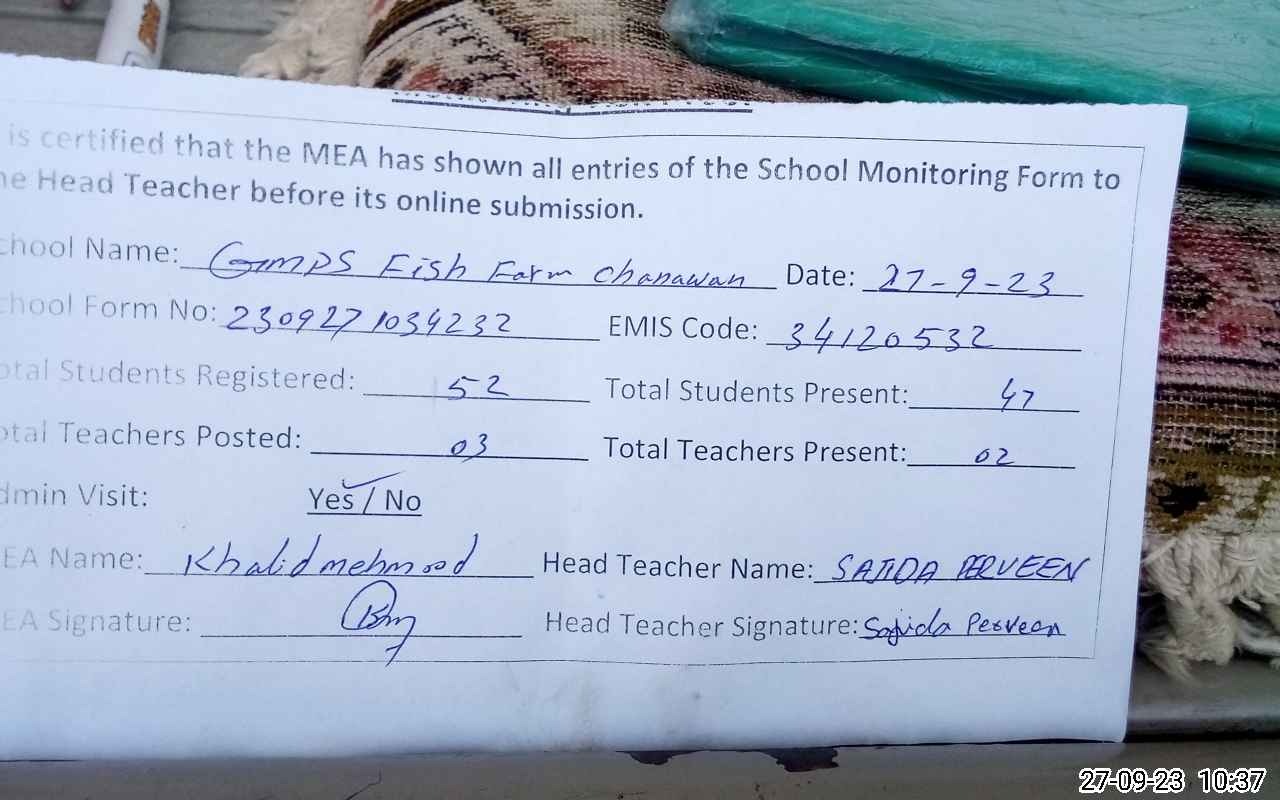 is certified that the MEA has shown all entries of the School Monitoring Form to
he Head Teacher before its online submission.
chool Name: GMPS Fish Farm Chanawan Date: 27-9-23
chool Form No: 230927 1034232 EMIS Code: 34120532
otal Students Registered: 52 Total Students Present: 47
otal Teachers Posted: 03 Total Teachers Present: 02
dmin Visit: Yes / No
EA Name: Khalid mehmood Head Teacher Name: SAJIDA PERVEEN
EA Signature: Head Teacher Signature: Sajida Perveen
27-09-23 10:37